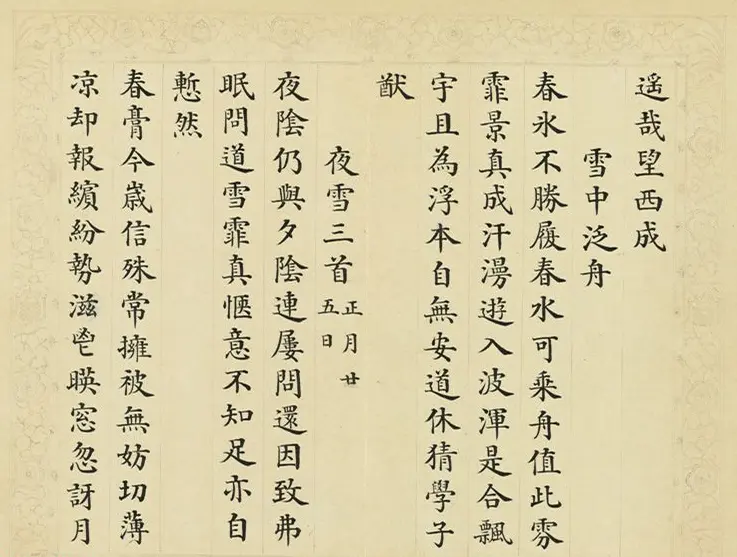 遥哉望西成
雪中泛舟
春氷不勝履春水可乘舟值此雰
霏景真成汗漫遊入波渾是合飄
宇且為浮本自無安道休猜學子
猷
夜雪三首 正月廿五日
夜陰仍與夕陰連屢問還因致弗
眠問道雪霏真愜意不知足亦自
慙然
春膏今歳信殊常擁被無妨切薄
凉却報繽紛勢滋鬯暎窓忽訝月